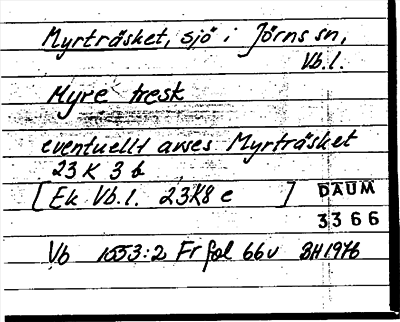 Myrträsket, sjö i Jörns sn,
Vb. l.
Myre tresk
eventuellt avses Myrträsket
23 K 3 b
[Ek. Vb. l. 23K8 e ] DAUM
3366
Vb 1553:2 Fr fol 66v BH1976